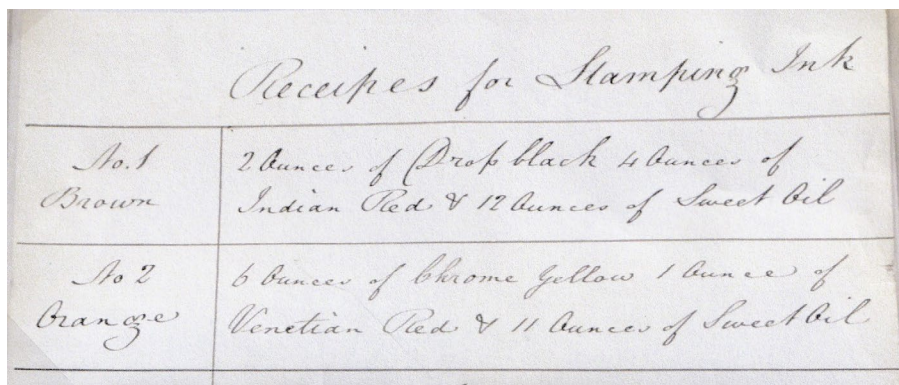 Receipes for Stamping Ink
No. 1
Brown
2 Ounces of Drop black 4 Ounces of
Indian Red & 12 Ounces of Sweet Oil
No 2
Orange
6 Ounces of Chrome Yellow 1 Ounce of
Venetian Red & 11 Ounces of Sweet Oil